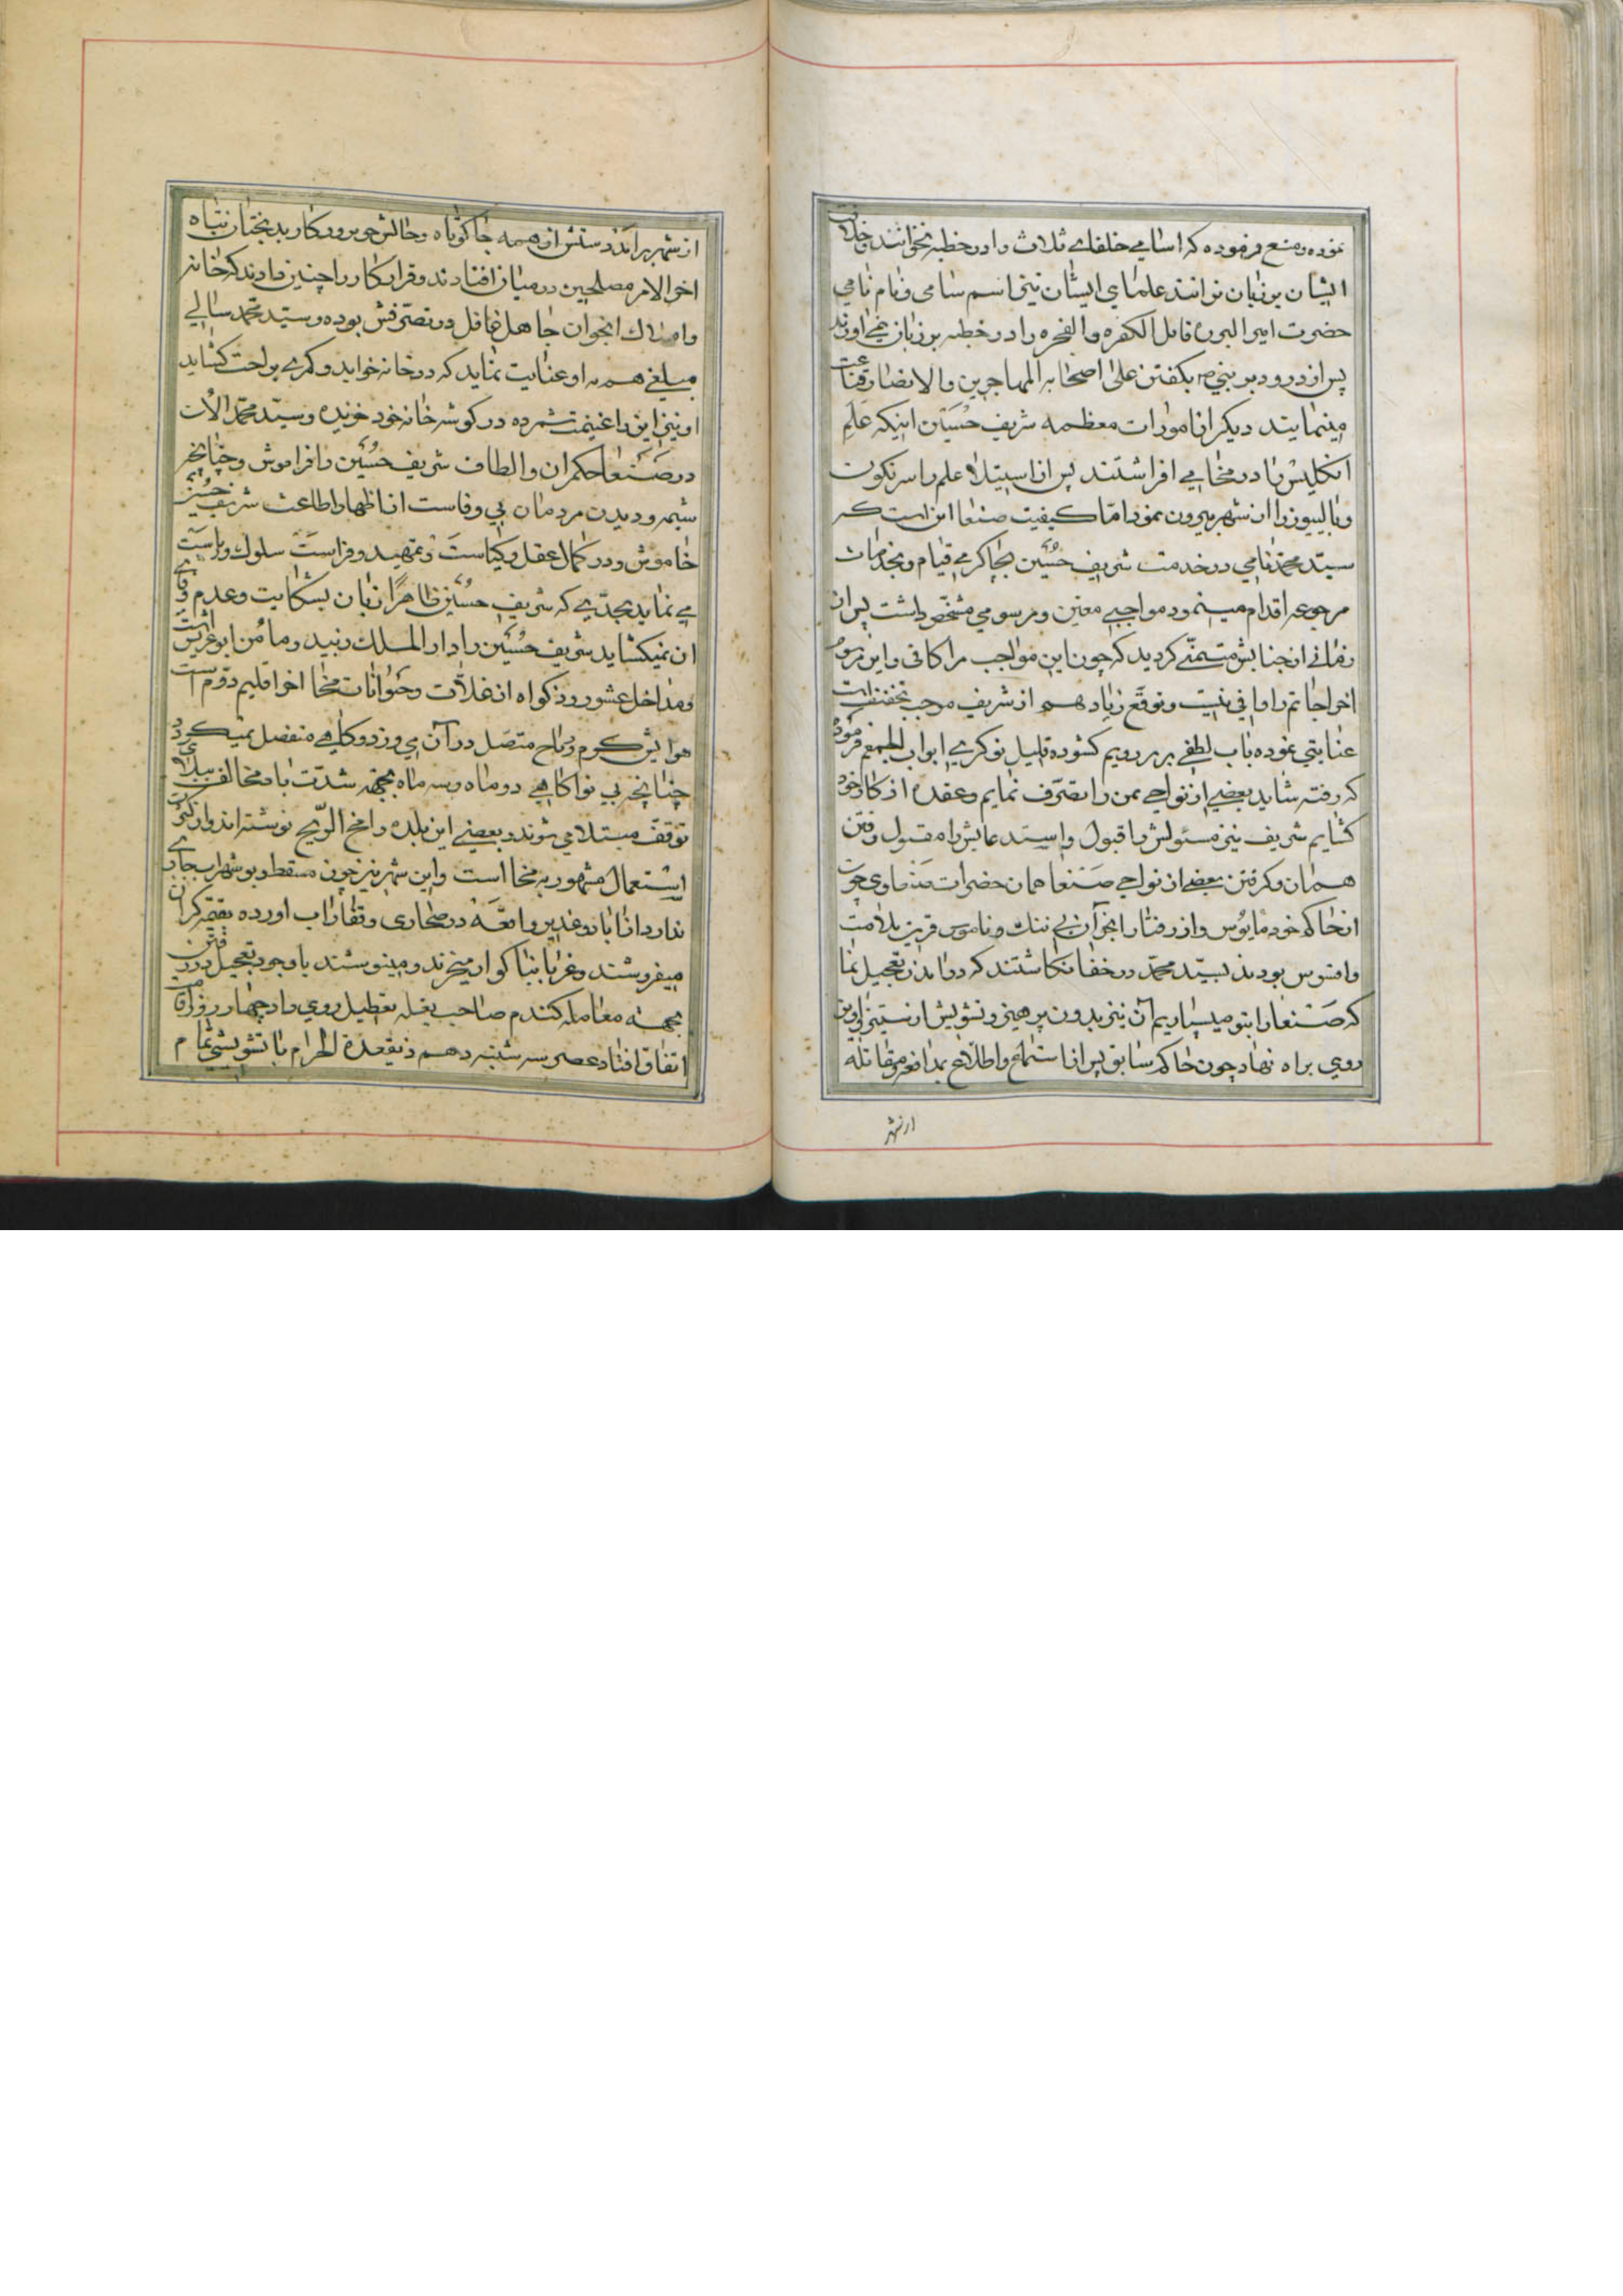 نموده و منع فرموده که اسامی خلفای ثلاث را در خطبه نخوانند و خلاف
ایشان بر زبان نرانند علمای ایشان نیز اسم سامی و نام نامی
حضرت امیر البرره قاتل الکفره والفجره را در خطبه بر زبان نمی‌اورند
پس از درود بر نبی ص بکفتن علی اصحابه المهاجرین والانصار قناعت
مینمایند دیکر از امورات معظمه شریف حسین اینکه علم
انکلیس را در مخا می افراشتند پس از استیلا علم را سرنکون
و بالیوز را از شهر بیرون نمود اما کیفیت صنعا این است که
سید محمد نامی در خدمت شریف حسین بچاکری قیام و بخدمات
مرجوعه اقدام مینمود مواجبی معین و مرسومی مشخص داشت پس از
زمانی از جنابش متمنی کردید که چون این مواجب مرا کافی و این مرسوم
اخراجاتم را وافی نیست و توقع زیاد هم از شریف موجب تخفیف است
عنایتی نموده باب لطفی بر رویم کشوده قلیل نوکری ابوابجمعم فرموده
که رفته شاید بعضی از نواحی یمن را تصرف نمایم و عقده از کار خود
کشایم شریف نیز مسئولش را قبول و استدعایش را مقبول رفتن
همان و کرفتن بعضی از نواحی صنعا همان حضرات چون
از حاکم خود مایوس و از رفتار انجوان بی ننک و ناموس قرین ملامت
وافسوس بودند بسید محمد در خفا نکاشتند که در آمدن تعجیل نما
که صنعا را بتو میسپاریم آن نیز بدون پرهیز و تشویش از ستیز و آویز
روی براه نهاد چون حاکم سابق پس از استماع و اطلاع بمدافعه و مقاتله
از شهر
از شهر برآمد دستش از همه جا کوتاه و حالش چو روزکار بدبختان تباه
اخر الامر مصلحین در میان افتادند و قرار کار را چنین دادند که خانه
و املاک انجوان جاهل غافل در تصرفش بوده و سید محمد سالی
مبلغی هم به او عنایت نماید که در خانه خوابد و کمری براحت کشاید
او نیز این را غنیمت شمرده در کوشه خانه خود خزیده و سید محمد الان
در صنعا حکمران و الطاف شریف حسین را فراموش و چنانچه
شیمه و دیدن مردمان بی وفاست از اظهار اطاعت شریف حسین
خاموش و در کمال عقل و کیاست و تمهید و فراست سلوک و ریاست
می نماید بحدی که شریف حسین ظاهرا زبان بشکایت و عدم وفای
ان نمیکشاید شریف حسین را دار الملک زبید و مامن ابوعریش است
و مداخل عشور و زکواه از غلات و حیوانات مخا اخر اقلیم دوم است
هوایش کرم و ریاح متصل در آن می وزد و کاهی منفصل نمیکردد
چنانچه کاهی دو ماه و سه ماه بجهه شدت باد مخالف ببلای
توقف مبتلا می شوند و بعضی این بلده را مخ الریح نوشته اند و از کثرت
استعمال مشهور به مخا است و این شهر نیز چون مسقط و بوشهر اب جاری
ندارد در صحاری و قفار اب اورده بقیمت کران
میفروشند و غربا بناکوار میخرند و مینوشند با وجود تعجیل در رفتن
بجهته معامله کندم صاحب بغله تعطیل روی داد چهار روز اقامت
اتفاق افتاد عصر سه شنبه دهم ذیقعدة الحرام با تشویشی تمام